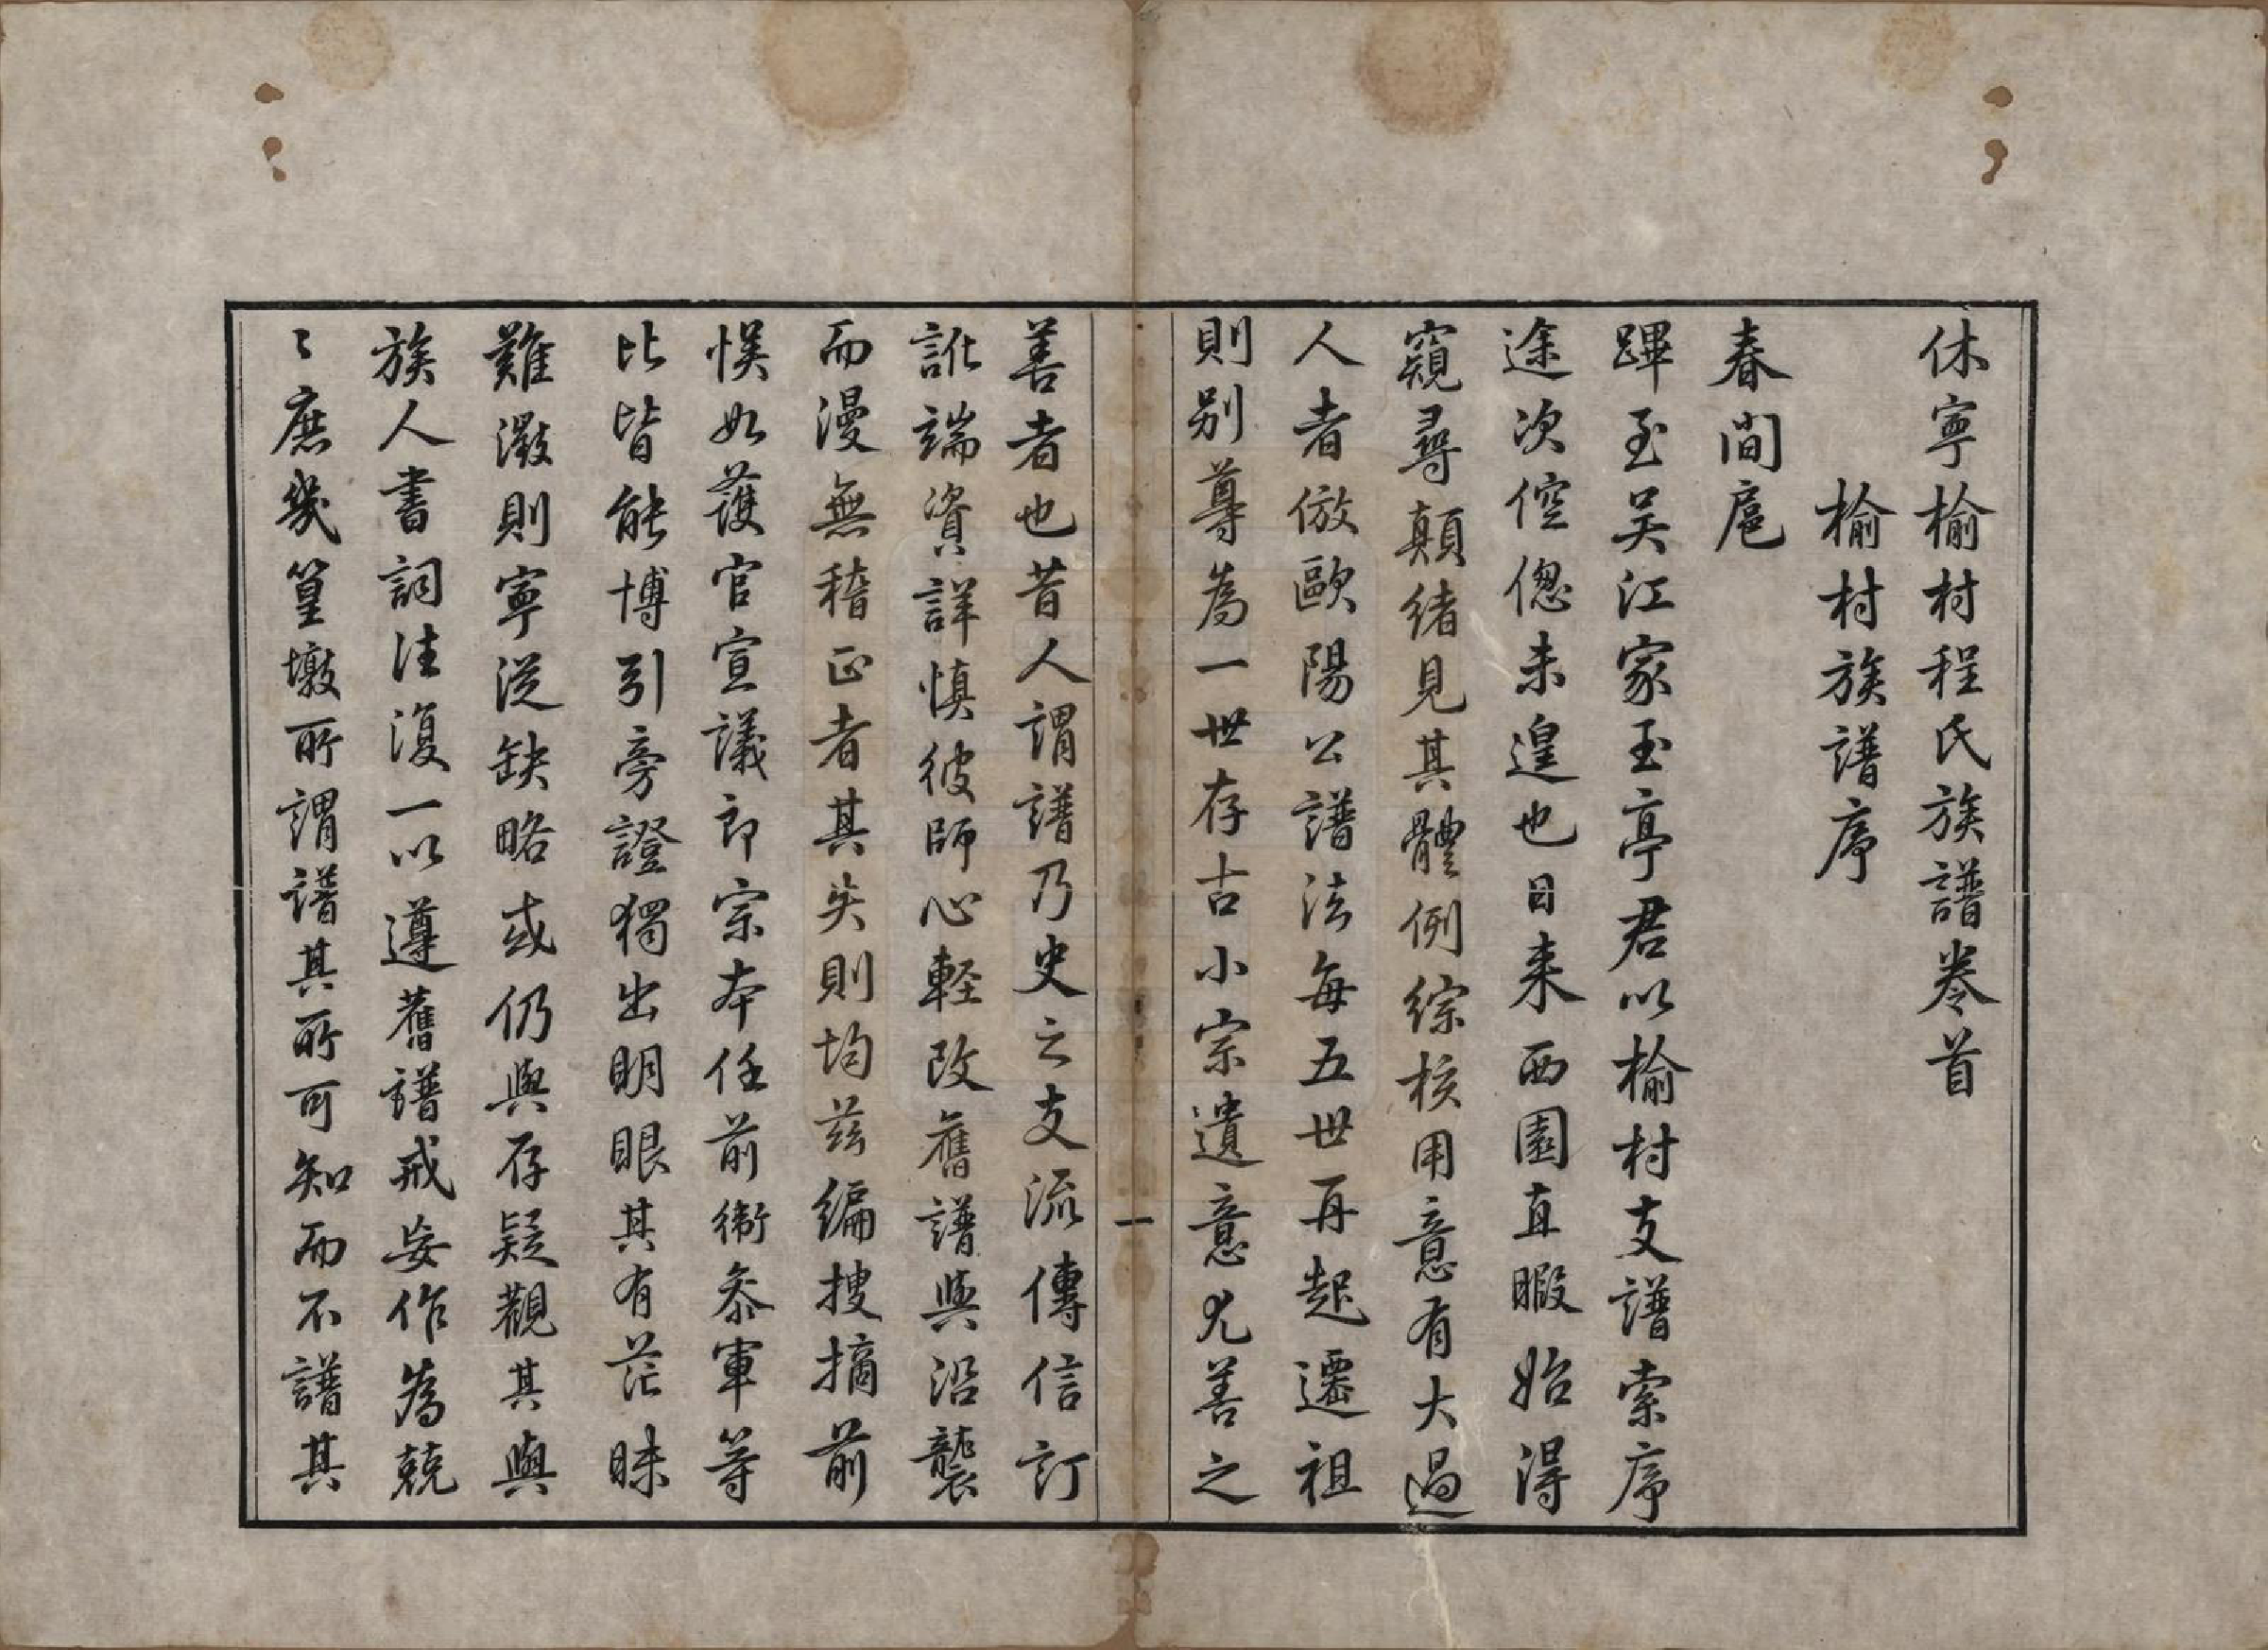 休寧榆村程氏族譜卷首
榆村族譜序
春間扈
蹕至吳江家玉亭君以榆村支譜索序
途次倥偬未遑也日来西園直暇始得
窺尋顛緒見其體例綜核用意有大過
人者倣歐陽公譜法每五世再起遷祖
則别尊為一世存古小宗遺意尤善之
一
善者也昔人謂譜乃史之支流傳信訂
訛端資詳慎彼師心輕改舊譜與沿襲
而漫無稽正者其失則均兹編搜摘前
悮如護官宣議郎宗本任前衛叅軍等
比皆能博引旁證獨出明眼其有茫昧
難澂則寧從缺略或仍與存疑觀其與
族人書詞往復一以遵舊譜戒妄作為兢
〻庶幾篁墩所謂譜其所可知而不譜其